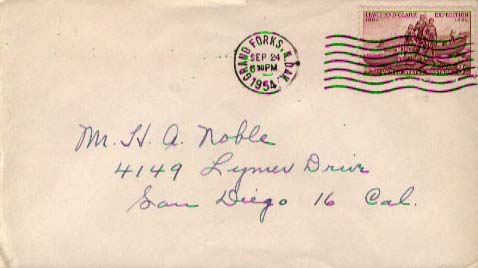 LEWIS AND CLARK EXPEDITION
1804 1954
UNITED STATES POSTAGE
GRAND FORKS, N. DAK.
SEP 24
PM
1954
Mr. H. A. Noble
4149 Lymer Drive
San Diego 16 Cal.